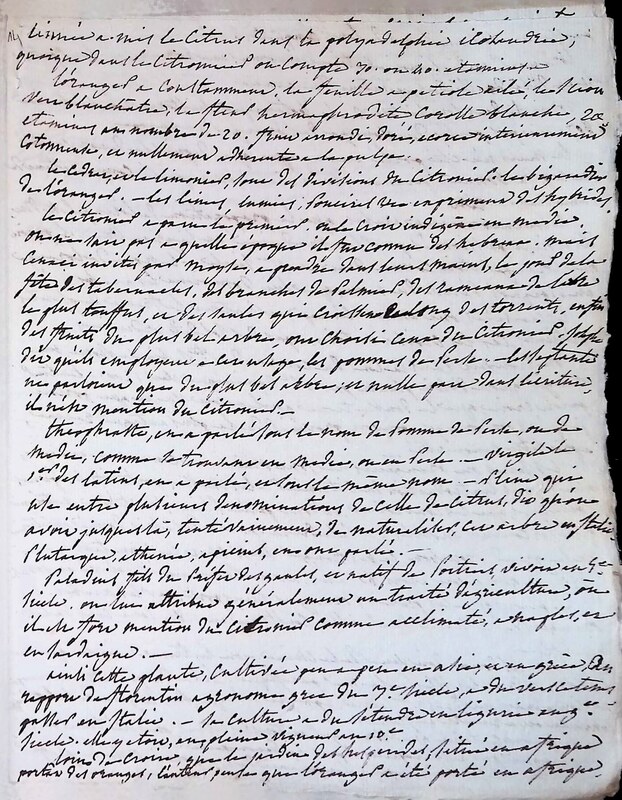 Linnée a mis le Citrus dans la polyadelphie icosandrie,
quoique dans le Citronier on Compte 30. ou 40. etamines.
l'oranger a Constamment, la feuille a petiole ailé, les
verdblanchatre, la fleur hermaphrodite Corolle blanche,
etamines au nombre de 20. fruit arrondi, doré, ecorce interieurement
Cotoneuse, et nullement adherente a la pulpe.
le Cedra, et le limonier, sont des divisions du Citronier. les bigaradiers
de l'oranger. — les limes, lumies, poncires une infinité des hybrides
le Citronier a paru le premier, on le croit indigène en medie
on ne sait pas a quelle epoque il fut connu des hebreux. mais
Ceux ci invités par moyse, a prendre dans leurs mains, le jour de la
fête des tabernacles, des branches de Palmier, des rameaux de l'arbre
le plus touffus, et des saules qui croissent le long des torrents, enfin
des fruits du plus bel arbre, ont choisi Ceux du Citronier, Joseph
dit qu'ils employent a cet usage, les pommes de Perse. — les septante
ne parloient que du plus bel arbre, et nulle part dans l'ecriture,
il n'est mention du Citronier. —
Theophraste, en a parlé sous le nom de Pomme de Perse, ou de
Medie, comme se trouvant en Medie, ou en Perse — Virgile le
1er des latins, en a parlé, et sous le même nom — Pline qui
use entre plusieurs denominations de celle de Citrus, dit qu'on
avoit jusques là, tenté Vainement, de naturaliser, cet arbre en Italie
Plutarque, athenée, apicius, en ont parlé. —
Paladius, fils du Préfet des gaules, et natif de Poitiers, vivoit en 5e
Siecle. on lui attribue généralement un traité d'agriculture, où
il est fort mention du Citronier comme acclimaté, a naples, et
en Sardaigne. —
ainsi Cette plante, Cultivée peu a peu en asie, et en grèce, au
rapport de florentin agronome grec du 3e siecle, a du vers ce tems
passer en Italie. — sa Culture a du s'étendre en ligurie au
Siecle. elle y etoit, en pleine vigueur au 10e
loin de Croire, que le jardin des hesperides, situé en afrique
portat des oranges, l'auteur pense que l'oranger a été porté en afrique,